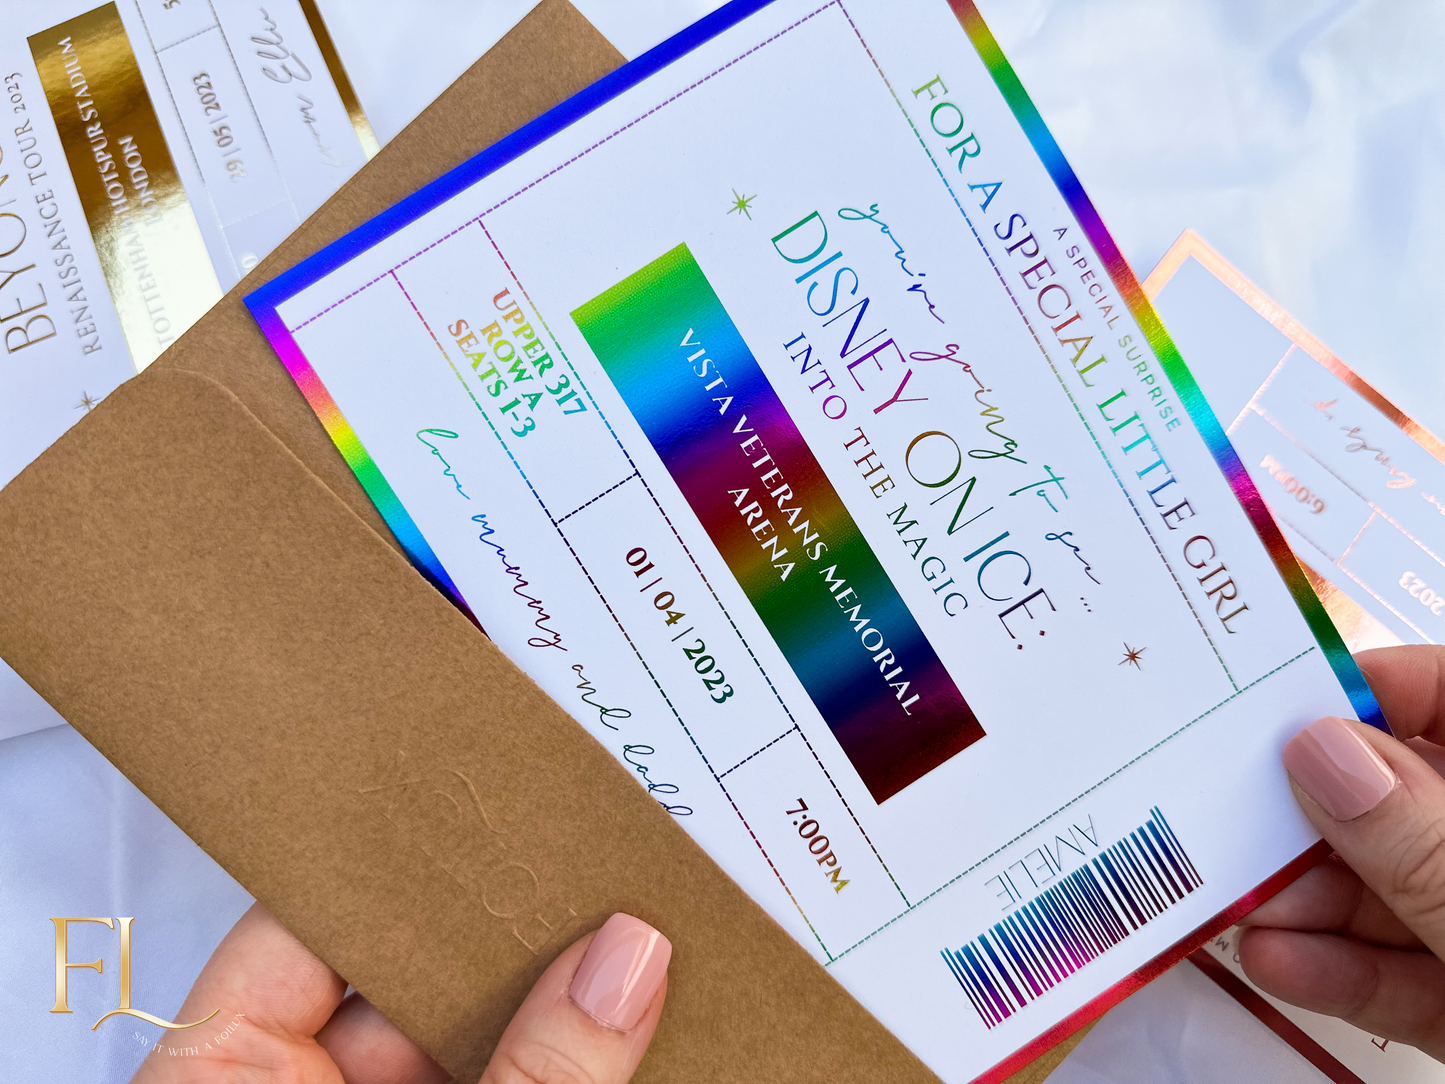 FOR A SPECIAL LITTLE GIRL
A SPECIAL SURPRISE
you're going to see ...
DISNEY ON ICE:
INTO THE MAGIC
VISTA VETERANS MEMORIAL
ARENA
UPPER 317
ROW A
SEATS 1-3
01 | 04 | 2023
7:00PM
love mummy and dadd
AMELIE
RENAISSANCE TOUR 2023
HOTSPUR STADIUM
29 | 05 | 2023
6:00PM
2023
FL
SAY IT WITH A FOILUX